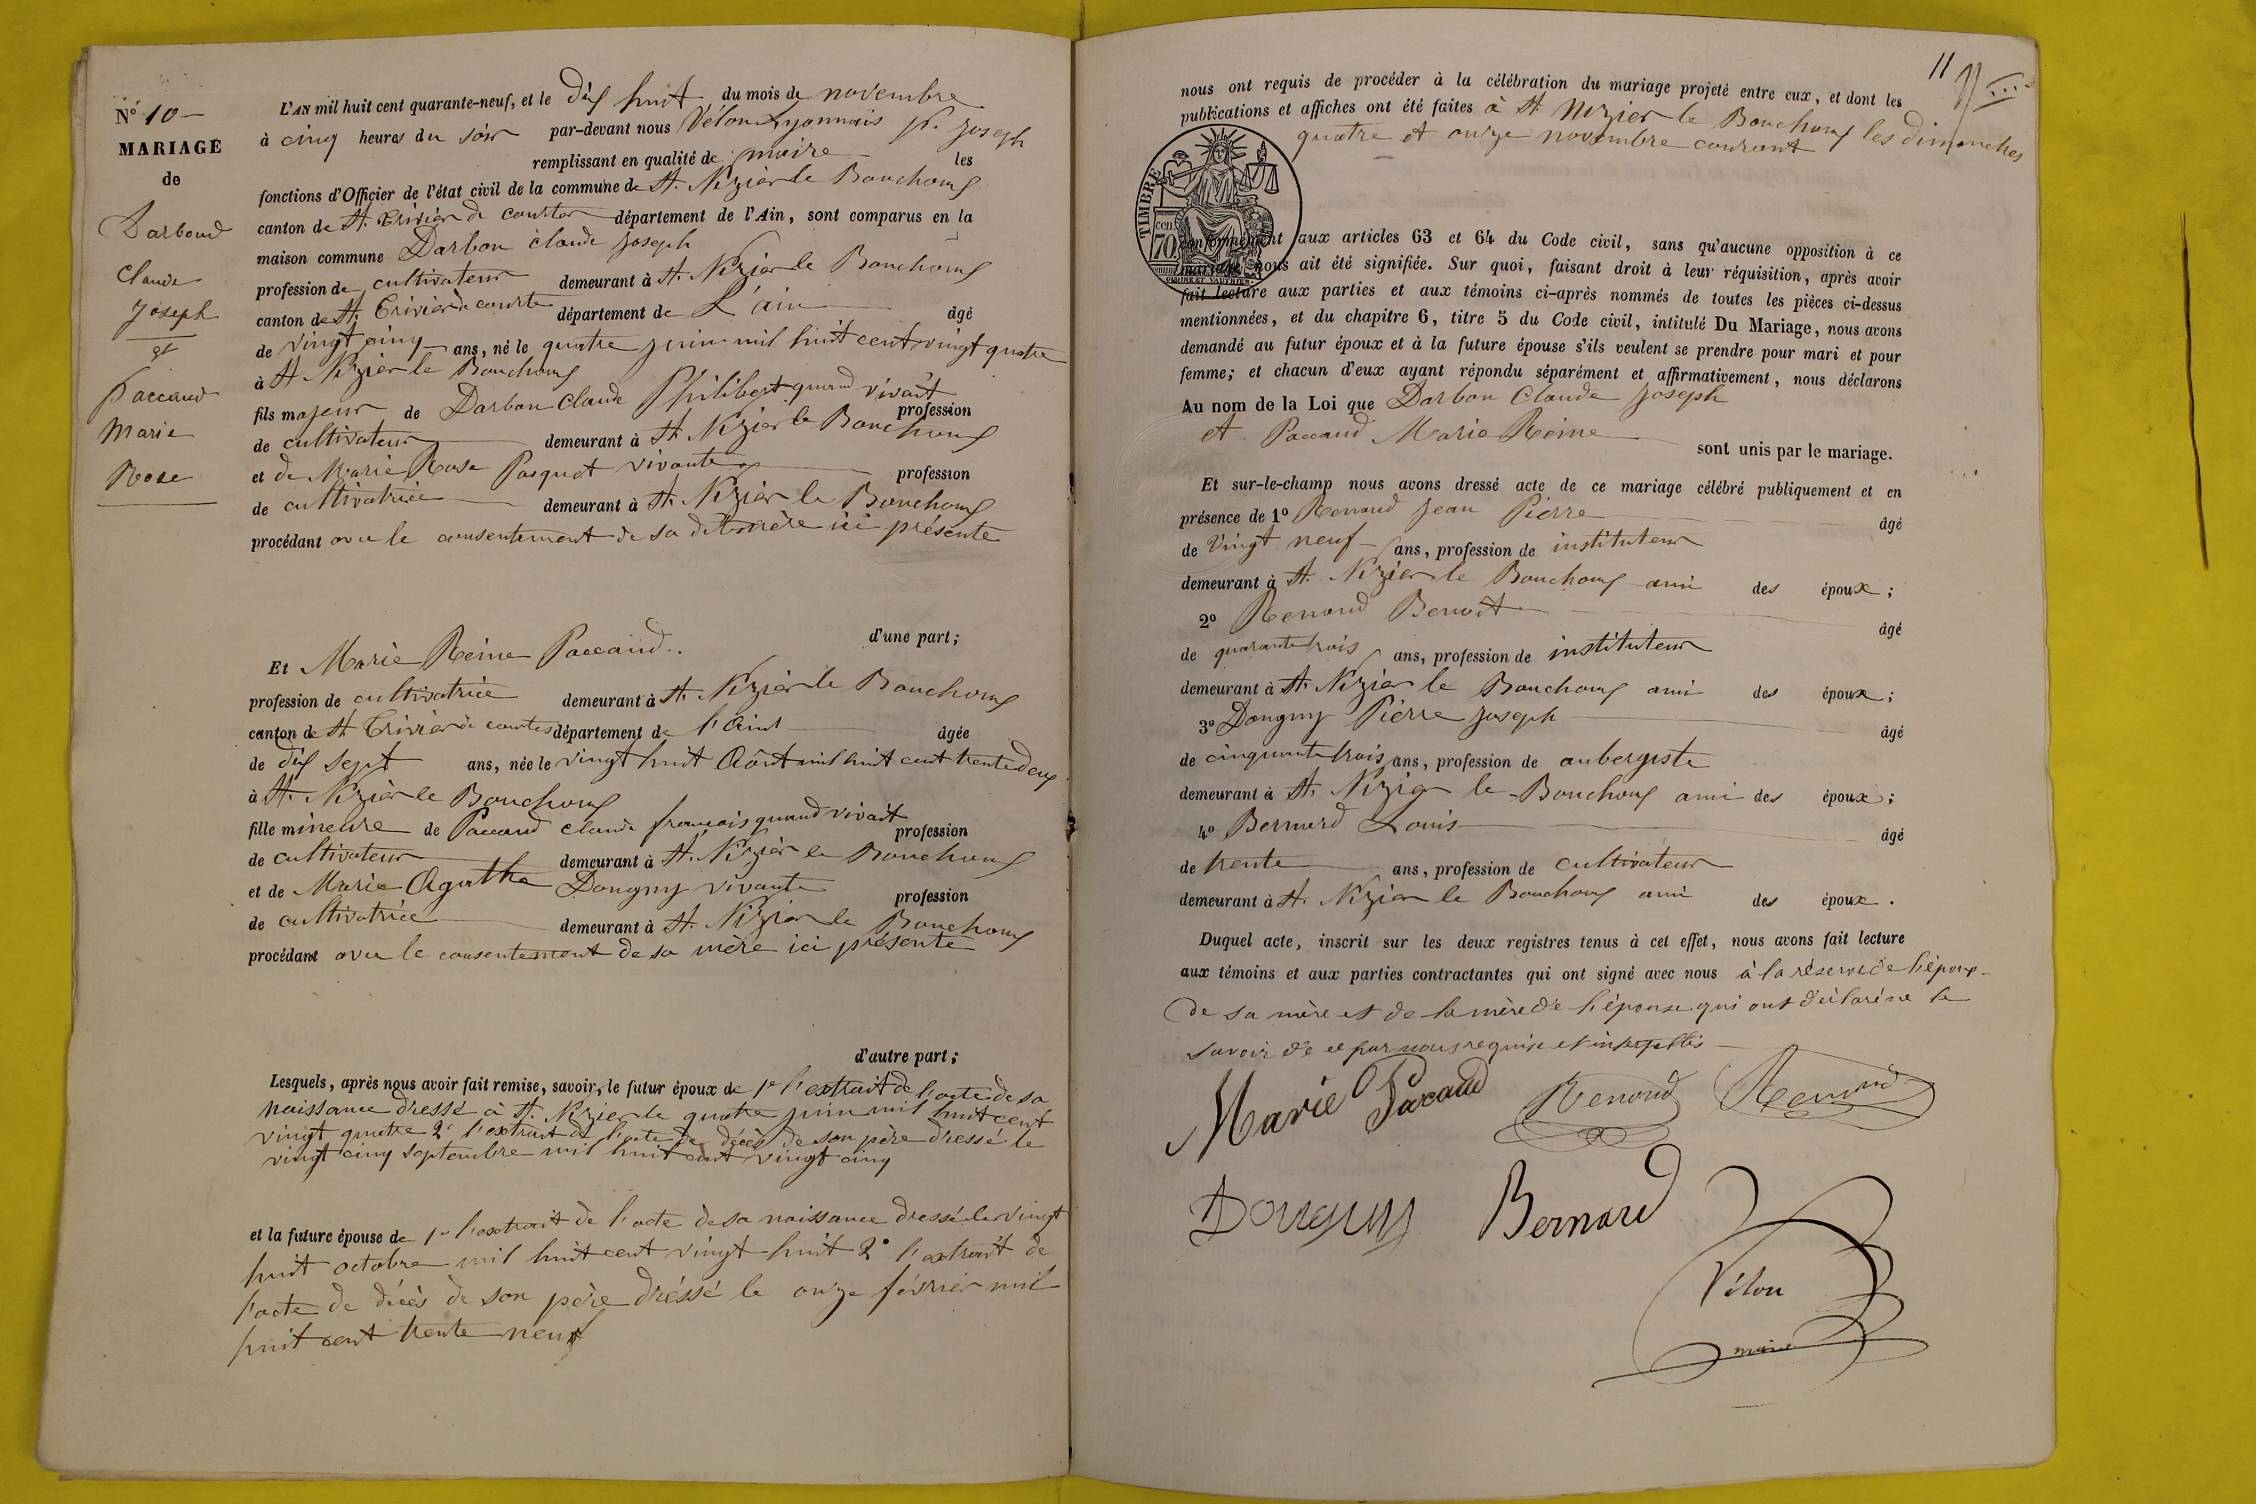 N° 10
MARIAGE
de
Darboud
Claude
Joseph
et
Paccaud
Marie
Rose
L'AN mil huit cent quarante-neuf, et le dix huit du mois de novembre
à cinq heures du soir par-devant nous Vélon Lyonnais P. Joseph
remplissant en qualité de maire les
fonctions d'Officier de l'état civil de la commune de St. Nizier le Bouchoux
canton de St. Trivier de courtes département de l'Ain, sont comparus en la
maison commune Darbon claude joseph
profession de cultivateur demeurant à St. Nizier le Bouchoux
canton de St. Trivier de courtes département de L'ain âgé
de vingt cinq ans, né le quatre juin mil huit cent vingt quatre
à St Nizier le Bouchoux
fils majeur de Darbon Claude Philibert quand vivait profession
de cultivateur demeurant à St. Nizier le Bouchoux
et de Marie Rose Pasquet vivante profession
de cultivatrice demeurant à St. Nizier le Bouchoux
procédant avec le consentement de sa dite mère ici présente
d'une part;
Et Marie Reine Paccaud
profession de cultivatrice demeurant à St. Nizier le Bouchoux
canton de St Trivier de courtes département de l'Ain âgée
de dix sept ans, née le vingt huit Août mil huit cent trente deux
à St. Nizier le Bouchoux
fille mineure de Paccaud claude françois quand vivait profession
de cultivateur demeurant à St. Nizier le Bouchoux
et de Marie Agathe Dougny vivante profession
de cultivatrice demeurant à St. Nizier le Bouchoux
procédant avec le consentement de sa mère ici présente
d'autre part;
Lesquels, après nous avoir fait remise, savoir, le futur époux de 1° l'extrait de l'acte de sa
naissance dressé à St. Nizier le quatre juin mil huit cent
vingt quatre 2° l'extrait de l'acte de décès de son père dressé le
vingt cinq septembre mil huit cent vingt cinq
et la future épouse de 1° l'extrait de l'acte de sa naissance dressé le vingt
huit octobre mil huit cent vingt huit 2° l'extrait de
l'acte de décès de son père dréssé le onze février mil
huit cent trente neuf
11
nous ont requis de procéder à la célébration du mariage projeté entre eux, et dont les
publications et affiches ont été faites à St. Nizier le Bouchoux les dimanches
quatre et onze novembre courant
TIMBRE
70
conformément aux articles 63 et 64 du Code civil, sans qu'aucune opposition à ce
mariage nous ait été signifiée. Sur quoi, faisant droit à leur réquisition, après avoir
fait lecture aux parties et aux témoins ci-après nommés de toutes les pièces ci-dessus
mentionnées, et du chapitre 6, titre 5 du Code civil, intitulé Du Mariage, nous avons
demandé au futur époux et à la future épouse s'ils veulent se prendre pour mari et pour
femme; et chacun d'eux ayant répondu séparément et affirmativement, nous déclarons
Au nom de la Loi que Darbon Claude Joseph
et Paccaud Marie Reine sont unis par le mariage.
Et sur-le-champ nous avons dressé acte de ce mariage célébré publiquement et en
présence de 1° Renoud Jean Pierre âgé
de Vingt neuf ans, profession de instituteur
demeurant à St. Nizier le Bouchoux ami des époux;
2° Renoud Benoit âgé
de quarante trois ans, profession de instituteur
demeurant à St. Nizier le Bouchoux ami des époux;
3° Dougny Pierre Joseph âgé
de cinquante trois ans, profession de aubergiste
demeurant à St. Nizier le Bouchoux ami des époux;
4° Bernard Louis âgé
de trente ans, profession de cultivateur
demeurant à St. Nizier le Bouchoux ami des époux.
Duquel acte, inscrit sur les deux registres tenus à cet effet, nous avons fait lecture
aux témoins et aux parties contractantes qui ont signé avec nous à la réserve de l'époux
de sa mère et de la mère de l'épouse qui ont déclaré ne le
savoir de ce par nous requis et interpellés
Marie Pacaud Renoud Renoud
Dougny Bernard
Vélon
maire